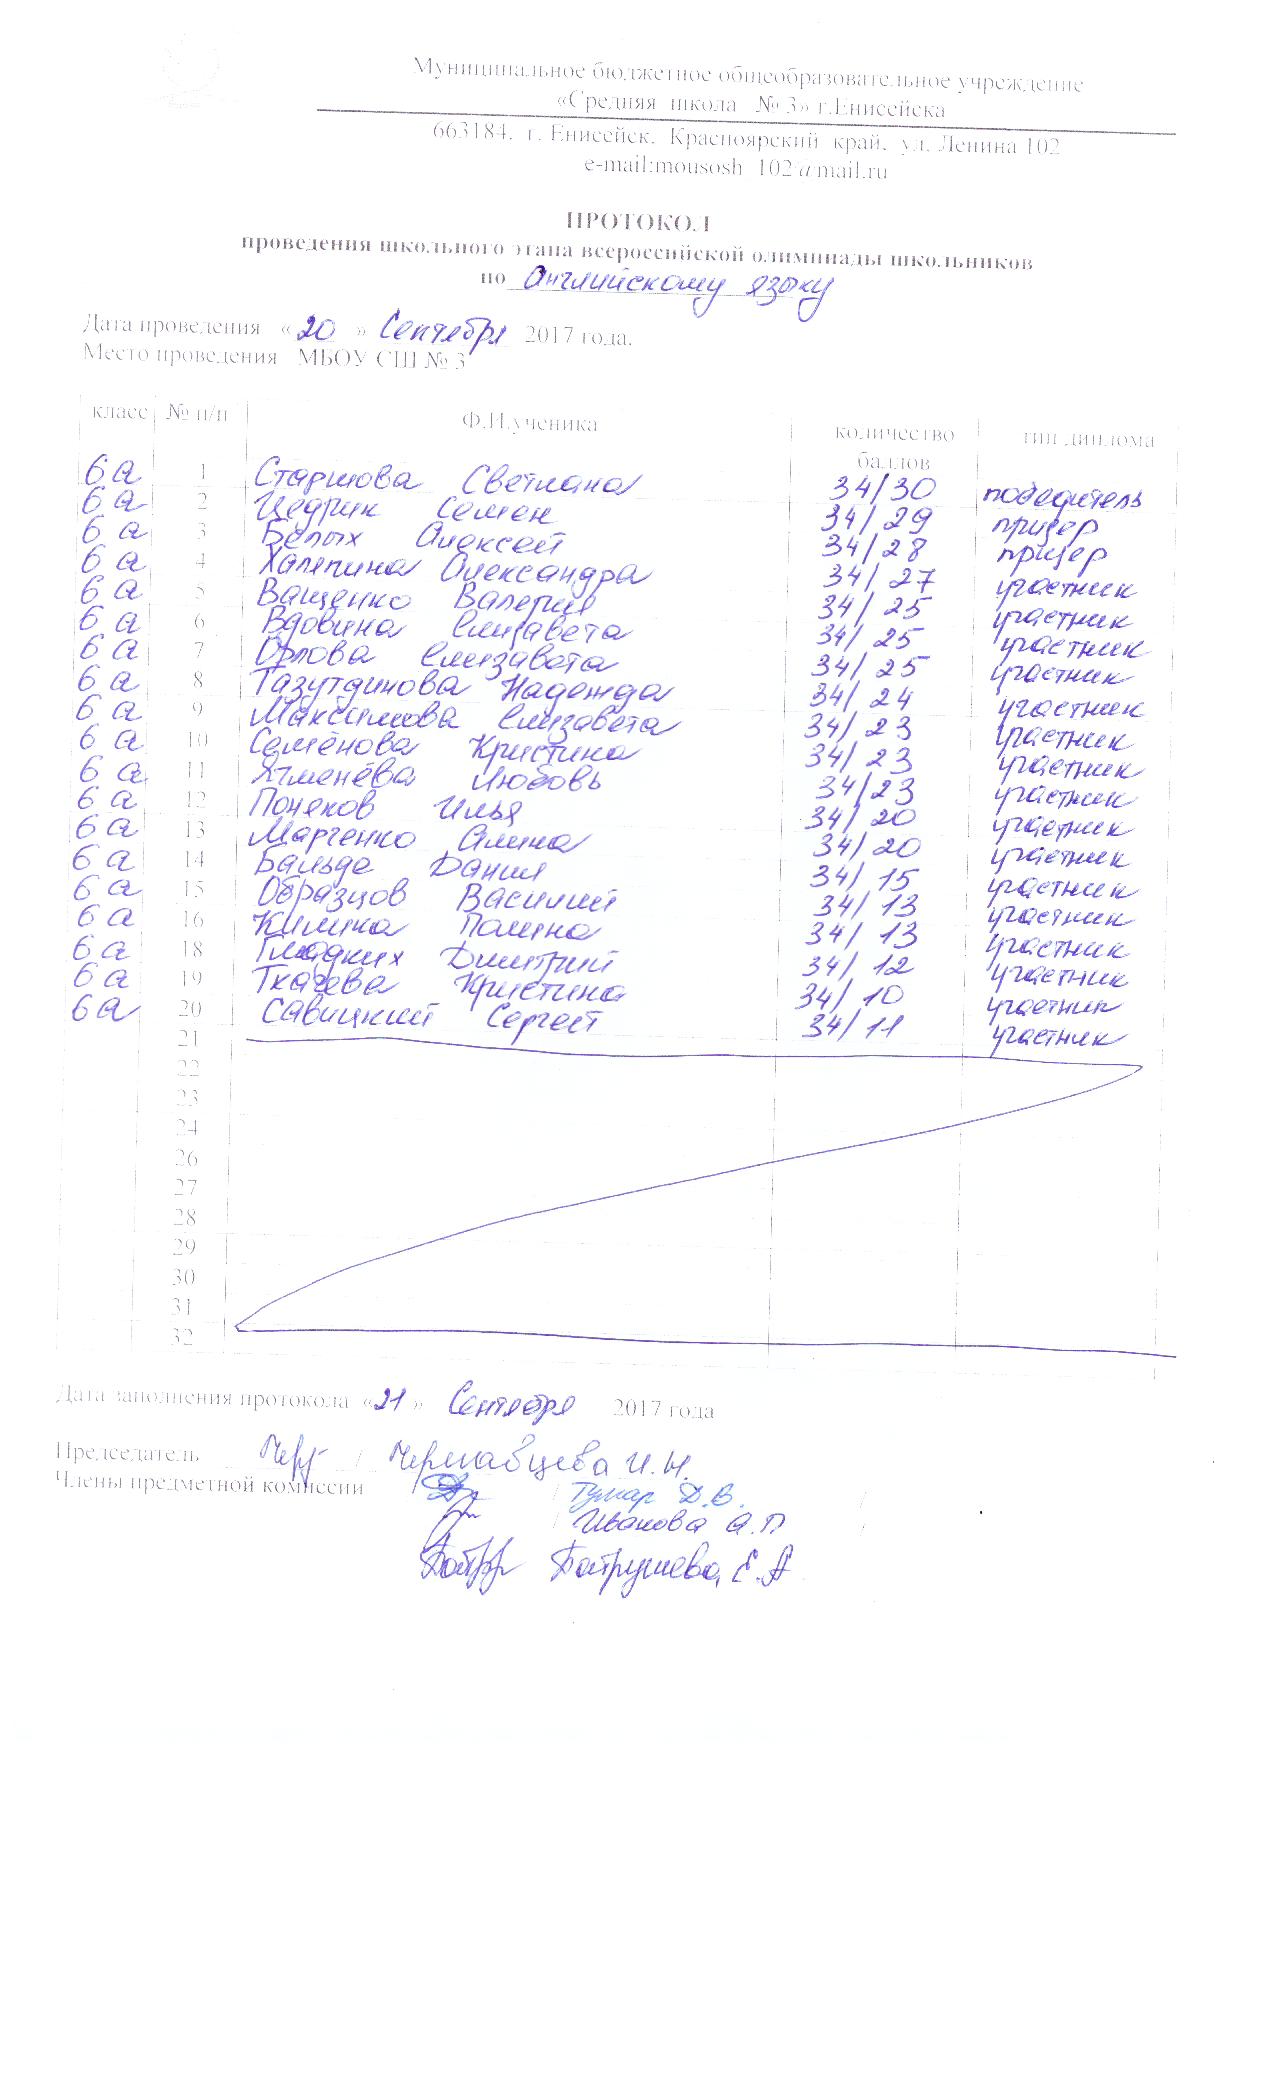 Муниципальное бюджетное общеобразовательное учреждение
«Средняя школа № 3» г.Енисейска
663184, г. Енисейск, Красноярский край, ул. Ленина 102
e-mail:mousosh_102@mail.ru
ПРОТОКОЛ
проведения школьного этапа всероссийской олимпиады школьников
по Английскому языку
Дата проведения «20» Сентября 2017 года.
Место проведения МБОУ СШ № 3
класс № п/п Ф.И.ученика количество баллов тип диплома
6а 1 Старшова Светлана 34/30 победитель
6а 2 Цедрик Семен 34/29 призер
6а 3 Белых Алексей 34/28 призер
6а 4 Халяпина Александра 34/27 участник
6а 5 Ващенко Валерия 34/25 участник
6а 6 Вдовина Елизавета 34/25 участник
6а 7 Орлова Елизавета 34/25 участник
6а 8 Тазутдинова Надежда 34/24 участник
6а 9 Максимова Елизавета 34/23 участник
6а 10 Семёнова Кристина 34/23 участник
6а 11 Ячменёва Любовь 34/23 участник
6а 12 Поняков Илья 34/20 участник
6а 13 Марченко Алина 34/20 участник
6а 14 Бальде Данил 34/15 участник
6а 15 Образцов Василий 34/13 участник
6а 16 Килина Полина 34/13 участник
6а 18 Гладких Дмитрий 34/12 участник
6а 19 Ткачева Кристина 34/10 участник
6а 20 Савицкий Сергей 34/11 участник
21
22
23
24
26
27
28
29
30
31
32
Дата заполнения протокола «21» Сентября 2017 года
Председатель / Чермавцева И.Н.
Члены предметной комиссии / Тумар Д.В. /
/ Иванова А.П /
Батрушева Е.А